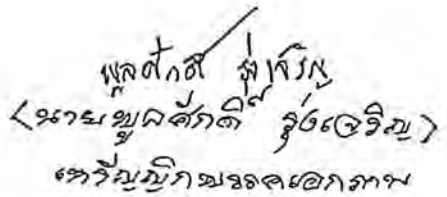 พูลศักดิ์ รุ่งเจริญ
(นายพูลศักดิ์ รุ่งเจริญ)
เหรัญญิกพรรคเอกภาพ